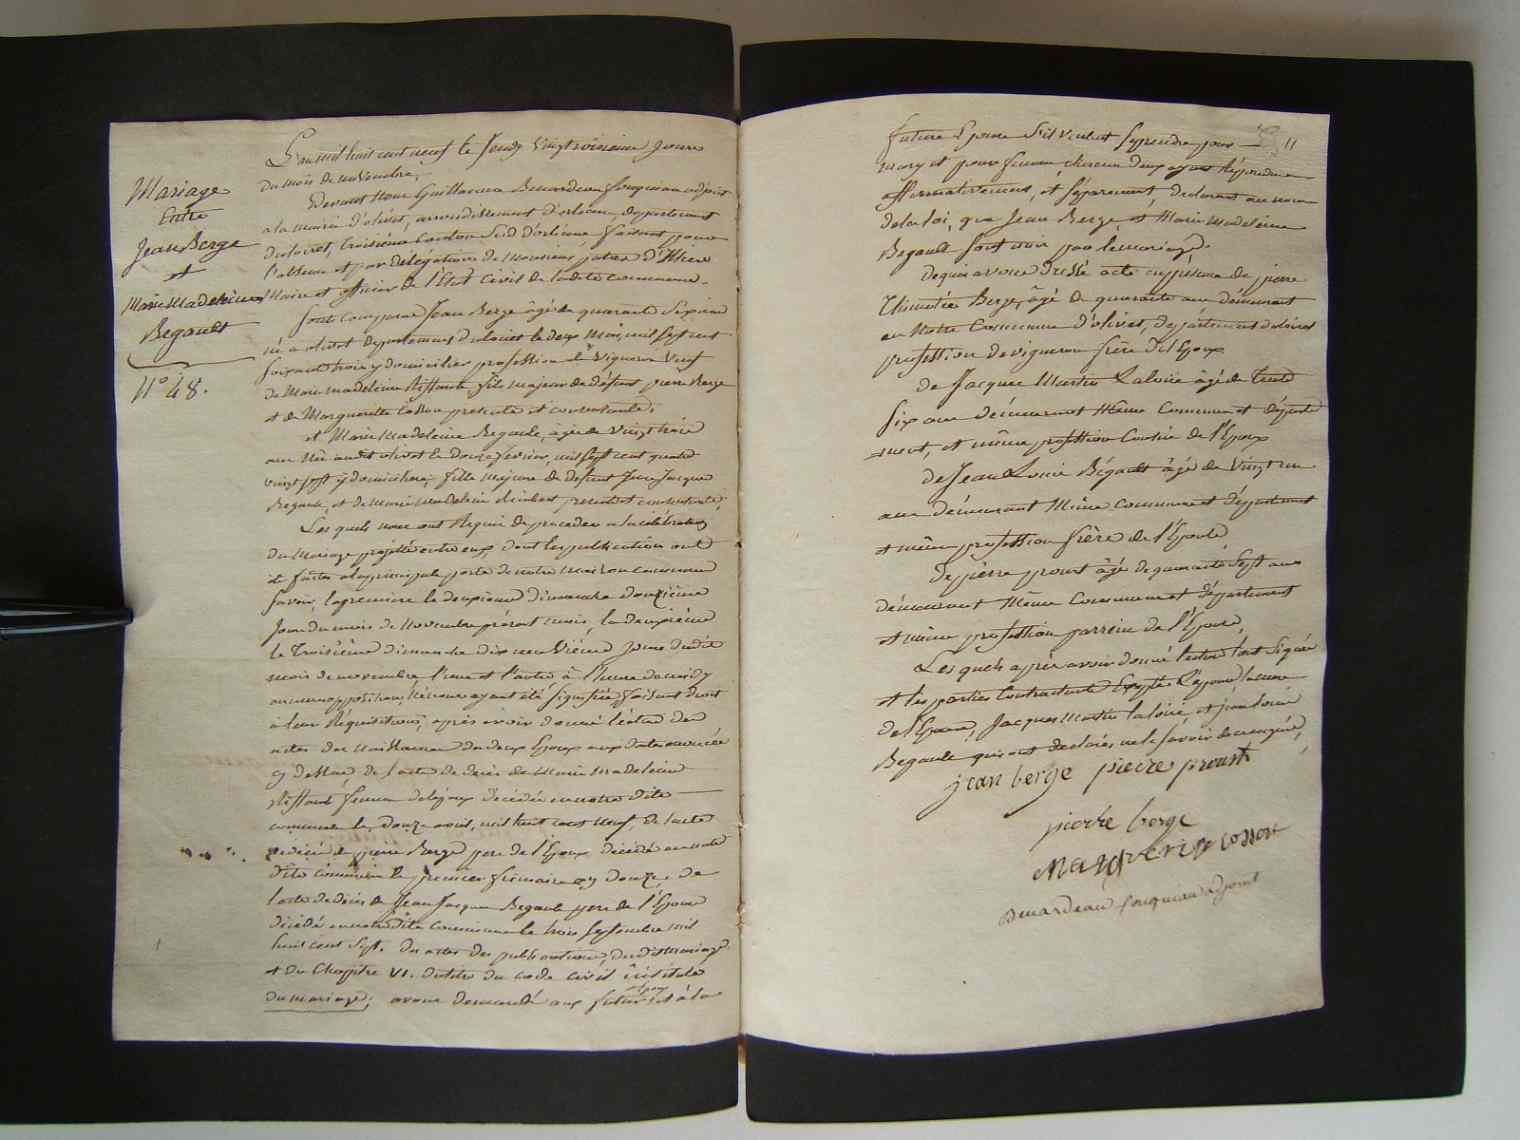 Mariage
Entre
Jean Berge
et
Marie Madeleine
Begault
N° 48.
L'an mil huit cent neuf le Jeudy Vingt troisieme Jour
du mois de novembre,
Devant Nous Guillaume Benardeau fouqueau adjoint
a la mairie d'olivet, arrondissement d'orleans, departement
du loiret, troisieme Canton Sud d'orleans faisant pour
l'absence et par delegation de Monsieur
Maire et officier de l'Etat Civil de ladite Commune.
Sont comparus Jean Berge âgé de quarante Six ans
né a olivet departement du loiret le deux Mai mil sept cent
soixante trois y domicilié profession de Vigneron Veuf
de Marie madeleine fils majeur de defunt pierre Berge
et de Marguerite Cosson presente et consentante;
et Marie Madeleine Begault, âgée de Vingt trois
ans Née audit olivet le Douze fevrier, mil sept cent quatre
vingt sept y domiciliée, fille majeure de defunt Jean Jacques
Begault, et de Marie Madeleine presente et consentante;
Les quels nous ont Requis de proceder a la celebration
du Mariage projetté entre eux, dont les publications ont
été faites a la principale porte de notre maison commune
savoir, la premiere le deuxieme dimanche douzieme
Jour du mois de Novembre présent mois, la deuxieme
le Troisieme dimanche dix neuvieme Jour dudit
mois de novembre l'une et l'autre à l'heure de midy
aucune opposition Ne nous ayant été signifiée, faisant droit
a leur Réquisitions, après avoir donné lecture des
actes de Naissance des deux Epoux aux dates
cy dessus, de l'acte de décès de Marie Madeleine
femme de l'epoux décédée en notre dite
commune le douze avril, mil huit cent neuf, de l'acte
de décès de pierre Berge pere de l'Epoux décédé en notre
dite commune le premier frimaire an douze, de
l'acte de décès de Jean Jacques Begault pere de l'Epouse
décédé en notre dite commune le trois Septembre mil
huit cent Sept. des actes des publications, dudit mariage
et du Chapitre VI. du titre du code civil intitulé
du mariage; avons demandé aux futur epoux et à la
future Epouse s'ils veulent se prendre pour 11
mary et pour femme, chacun d'eux ayant Répondu
affirmativement, et séparement, declarons au nom
de la loi, que Jean Berge et Marie madeleine
Begault sont unis par le mariage.
De quoi avons dressé acte en présence de pierre
Thimotée Berge, âgé de quarante ans demeurant
en Notre Commune d'olivet, département du loiret
profession de vigneron frère de l'Epoux
de Jacques Martin Laloüe âgé de trente
Six ans demeurant Même Commune et départe
ment, et même profession Cousin de l'Epoux
de Jean Louis Bégault âgé de Vingt un
ans demeurant Même Commune et département
et même profession frère de l'Epouse
de pierre proust âgé de quarante Sept ans
demeurant Même Commune et département
et même profession parrein de l'Epouse,
Les quels après avoir donné lecture l'ont Signée
et les parties Contractantes Excepté l'épouse la mere
de l'Epouse, Jacques Martin laloüe, et jean louis
Begault qui ont declarés ne le savoir de ce enquis,
jean berge pierre proust
pierre berge
Marguerite cosson
Benardeau fouqueau adjoint